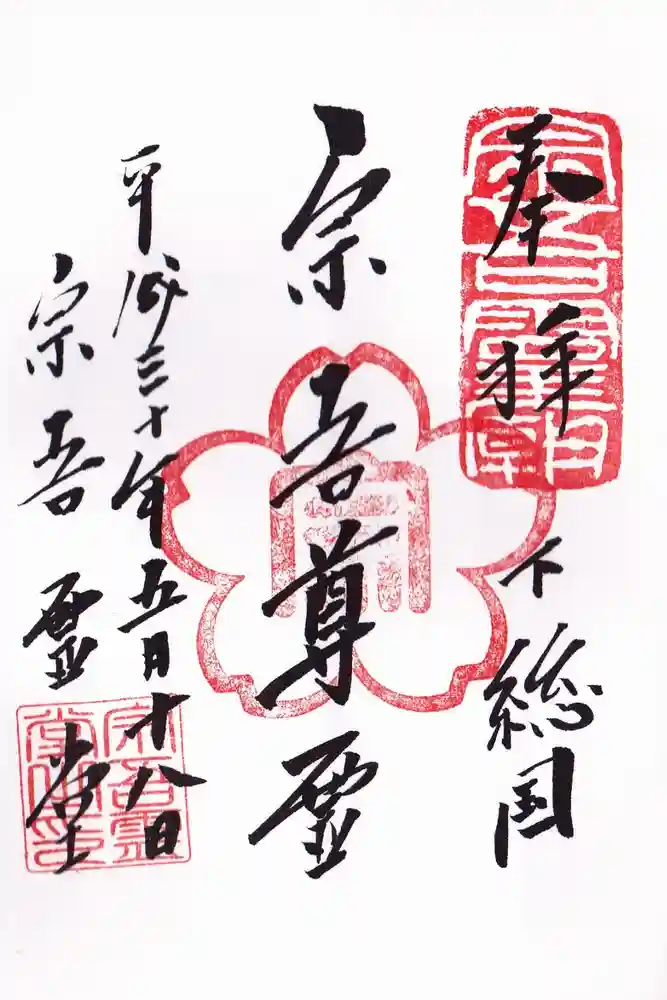 奉拝
下総国
宗吾尊霊
平成三十年五月十八日
宗吾霊堂